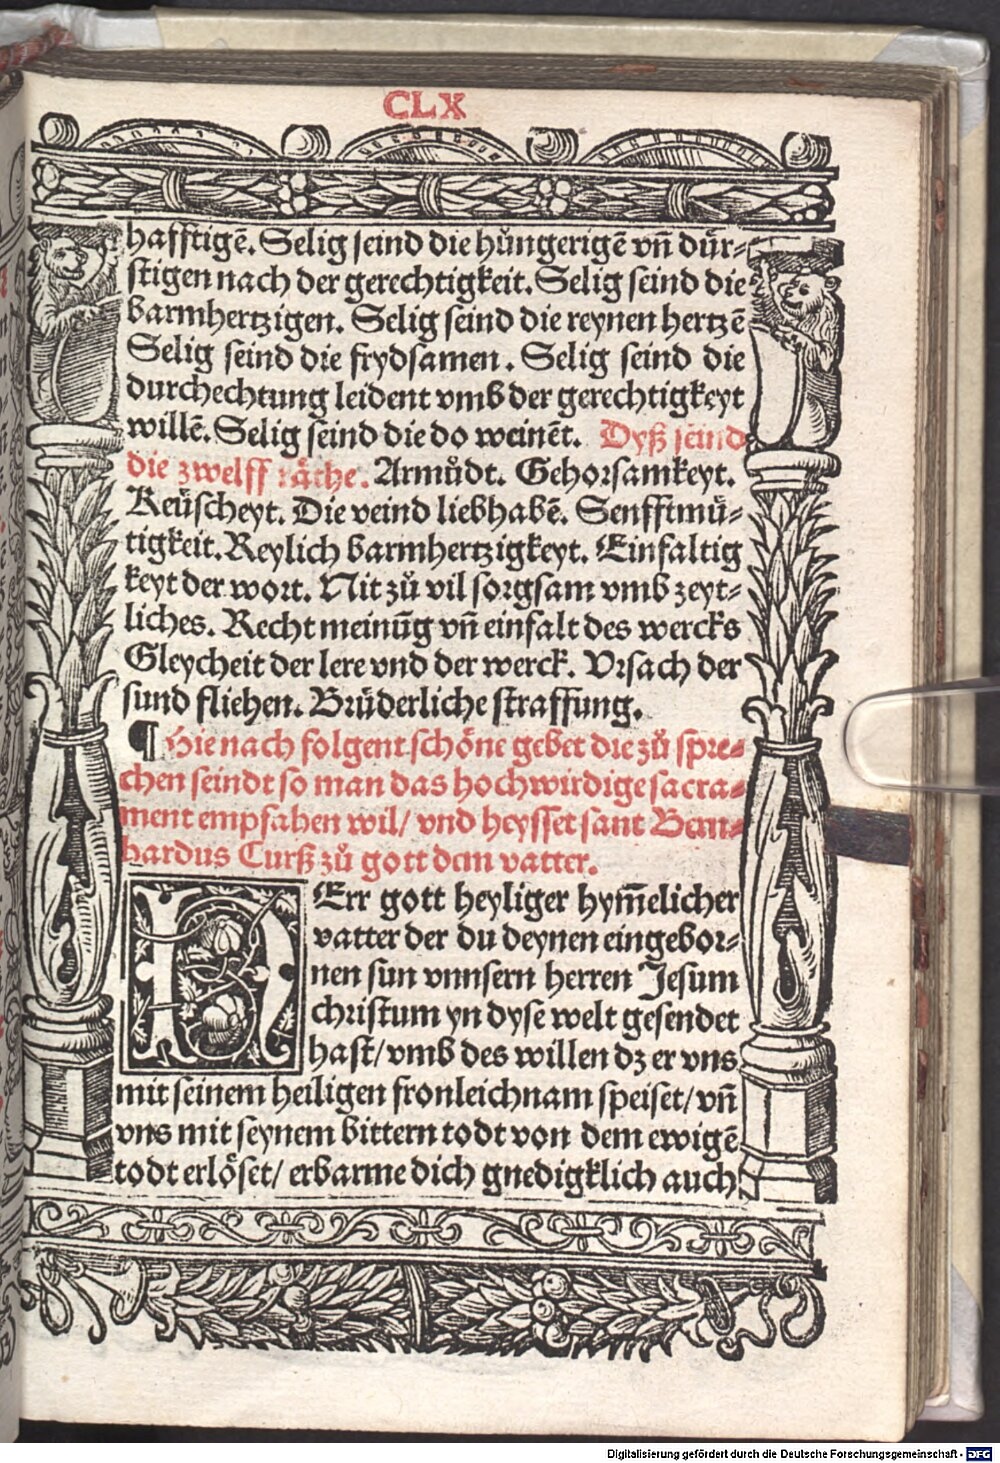 CLX
hafftigē. Selig seind die hüngerigē vñ dür⸗
stigen nach der gerechtigkeit. Selig seind die
barmhertzigen. Selig seind die reynen hertzē
Selig seind die frydsamen. Selig seind die
durchechtung leident vmb der gerechtigkeyt
willē. Selig seind die do weinēt. Dyß seind
die zwelff räthe. Armůdt. Gehorsamkeyt.
Keüscheyt. Die veind liebhabē. Senfftmü⸗
tigkeit. Reylich barmhertzigkeyt. Einfaltig
keyt der wort. Nit zů vil sorgsam vmb zeyt⸗
liches. Recht meinūg vñ einfalt des wercks
Gleycheit der lere vnd der werck. Vrsach der
sund fliehen. Brüderliche straffung.
¶ Hie nach folgent schöne gebet die zů spre⸗
chen seindt so man das hochwirdige sacra⸗
ment empfahen wil/ vnd heysset sant Bern⸗
hardus Curß zů gott dem vatter.
HErr gott heyliger hym̄elicher
vatter der du deynen eingebor⸗
nen sun vnnsern herren Jesum
christum yn dyse welt gesendet
hast/ vmb des willen dz er vns
mit seinem heiligen fronleichnam speiset/ vñ
vns mit seynem bittern todt von dem ewigē
todt erlöset/ erbarme dich gnedigklich auch
Digitalisierung gefördert durch die Deutsche Forschungsgemeinschaft - DFG